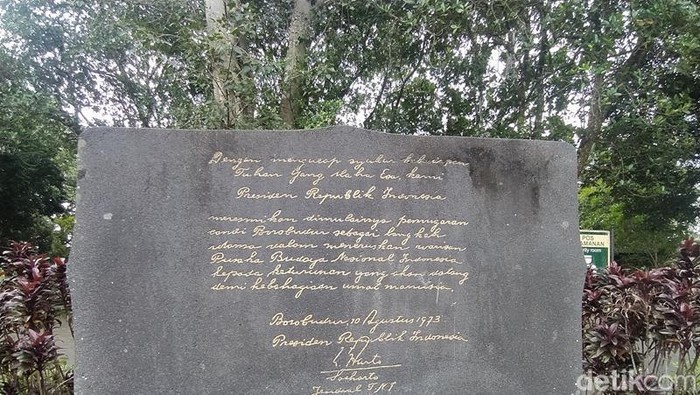 Dengan mengucap syukur kehadapan
Tuhan Yang Maha Esa, kami
Presiden Republik Indonesia
meresmikan dimulainya pemugaran
candi Borobudur sebagai langkah
utama dalam meneruskan warisan
Pusaka Budaya Nasional Indonesia
kepada keturunan yang akan datang
demi kebahagiaan umat manusia.
Borobudur, 10 Agustus 1973
Presiden Republik Indonesia
Soeharto
Jenderal T.N.I
POS
AMANAN
ty room
detikcom